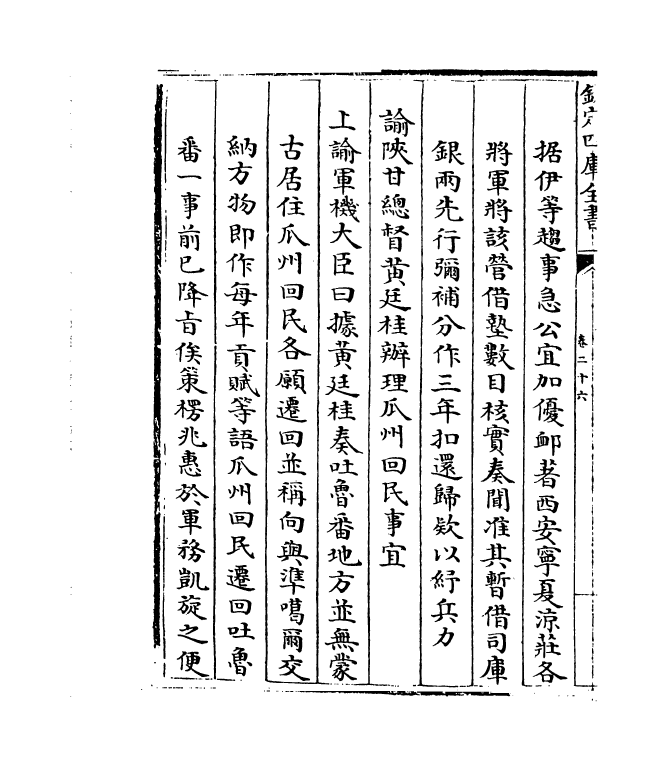 欽定四庫全書
卷二十六
据伊等趨事急公宜加優卹著西安寧夏涼莊各
將軍將該營借墊數目核實奏聞准其暫借司庫
銀兩先行彌補分作三年扣還歸欵以紓兵力
諭陜甘總督黃廷桂辦理瓜州回民事宜
上諭軍機大臣曰據黃廷桂奏吐魯番地方並無蒙
古居住瓜州回民各願遷回並稱向與準噶爾交
納方物即作每年貢賦等語瓜州回民遷回吐魯
番一事前已降旨俟策楞兆惠於軍務凱旋之便